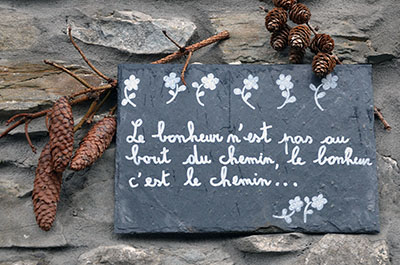 Le bonheur n'est pas au
bout du chemin, le bonheur
c'est le chemin...